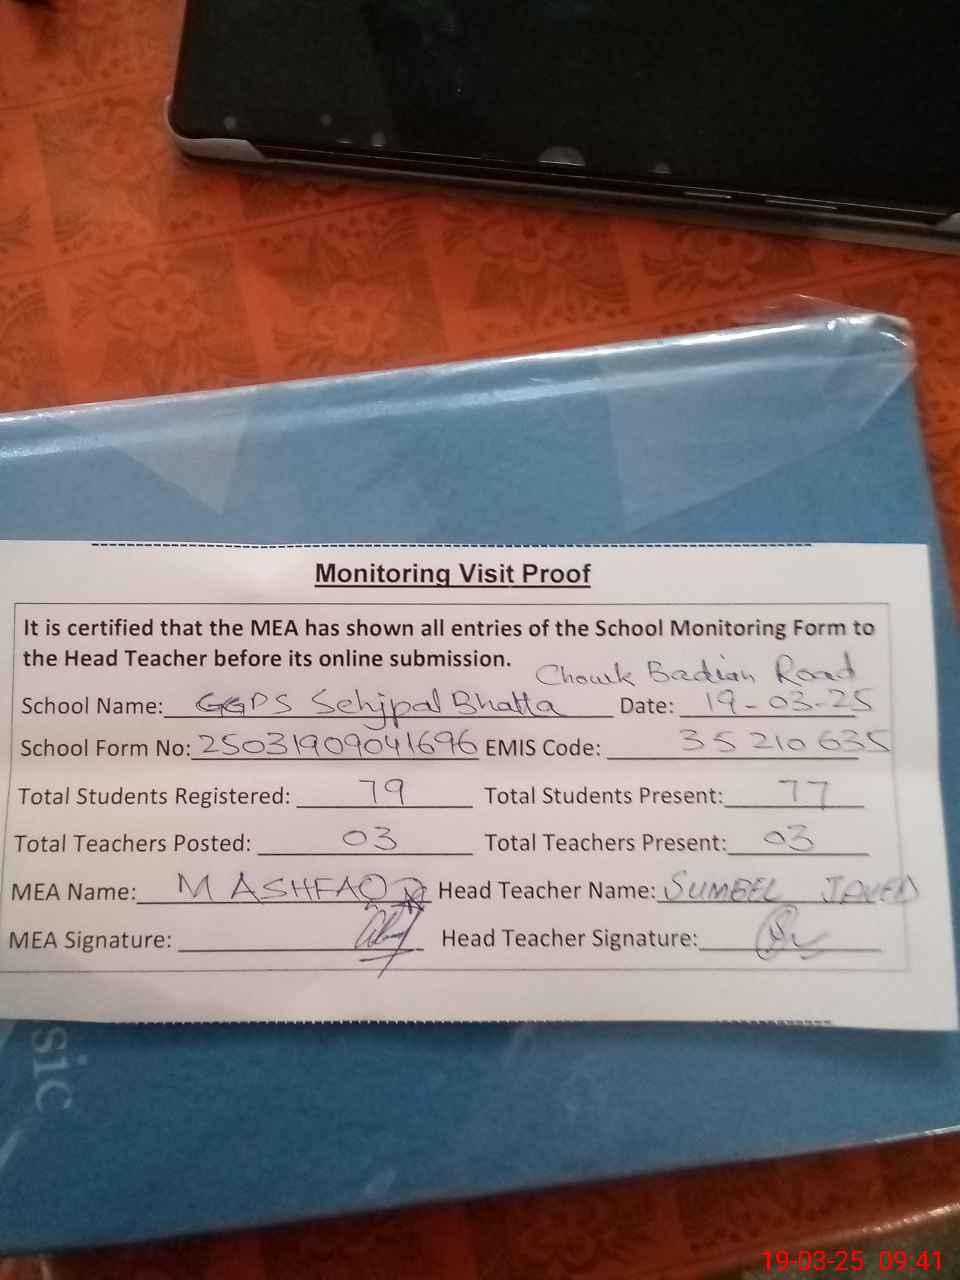 Monitoring Visit Proof
It is certified that the MEA has shown all entries of the School Monitoring Form to
the Head Teacher before its online submission.
Chowk Badian Road
School Name: GGPS Sehjpal Bhatta Date: 19-03-25
School Form No: 25031909041696 EMIS Code: 35210635
Total Students Registered: 79 Total Students Present: 77
Total Teachers Posted: 03 Total Teachers Present: 03
MEA Name: M ASHFAQ Head Teacher Name: SUMBEL JAVED
MEA Signature: Head Teacher Signature:
sic
19-03-25 09:41